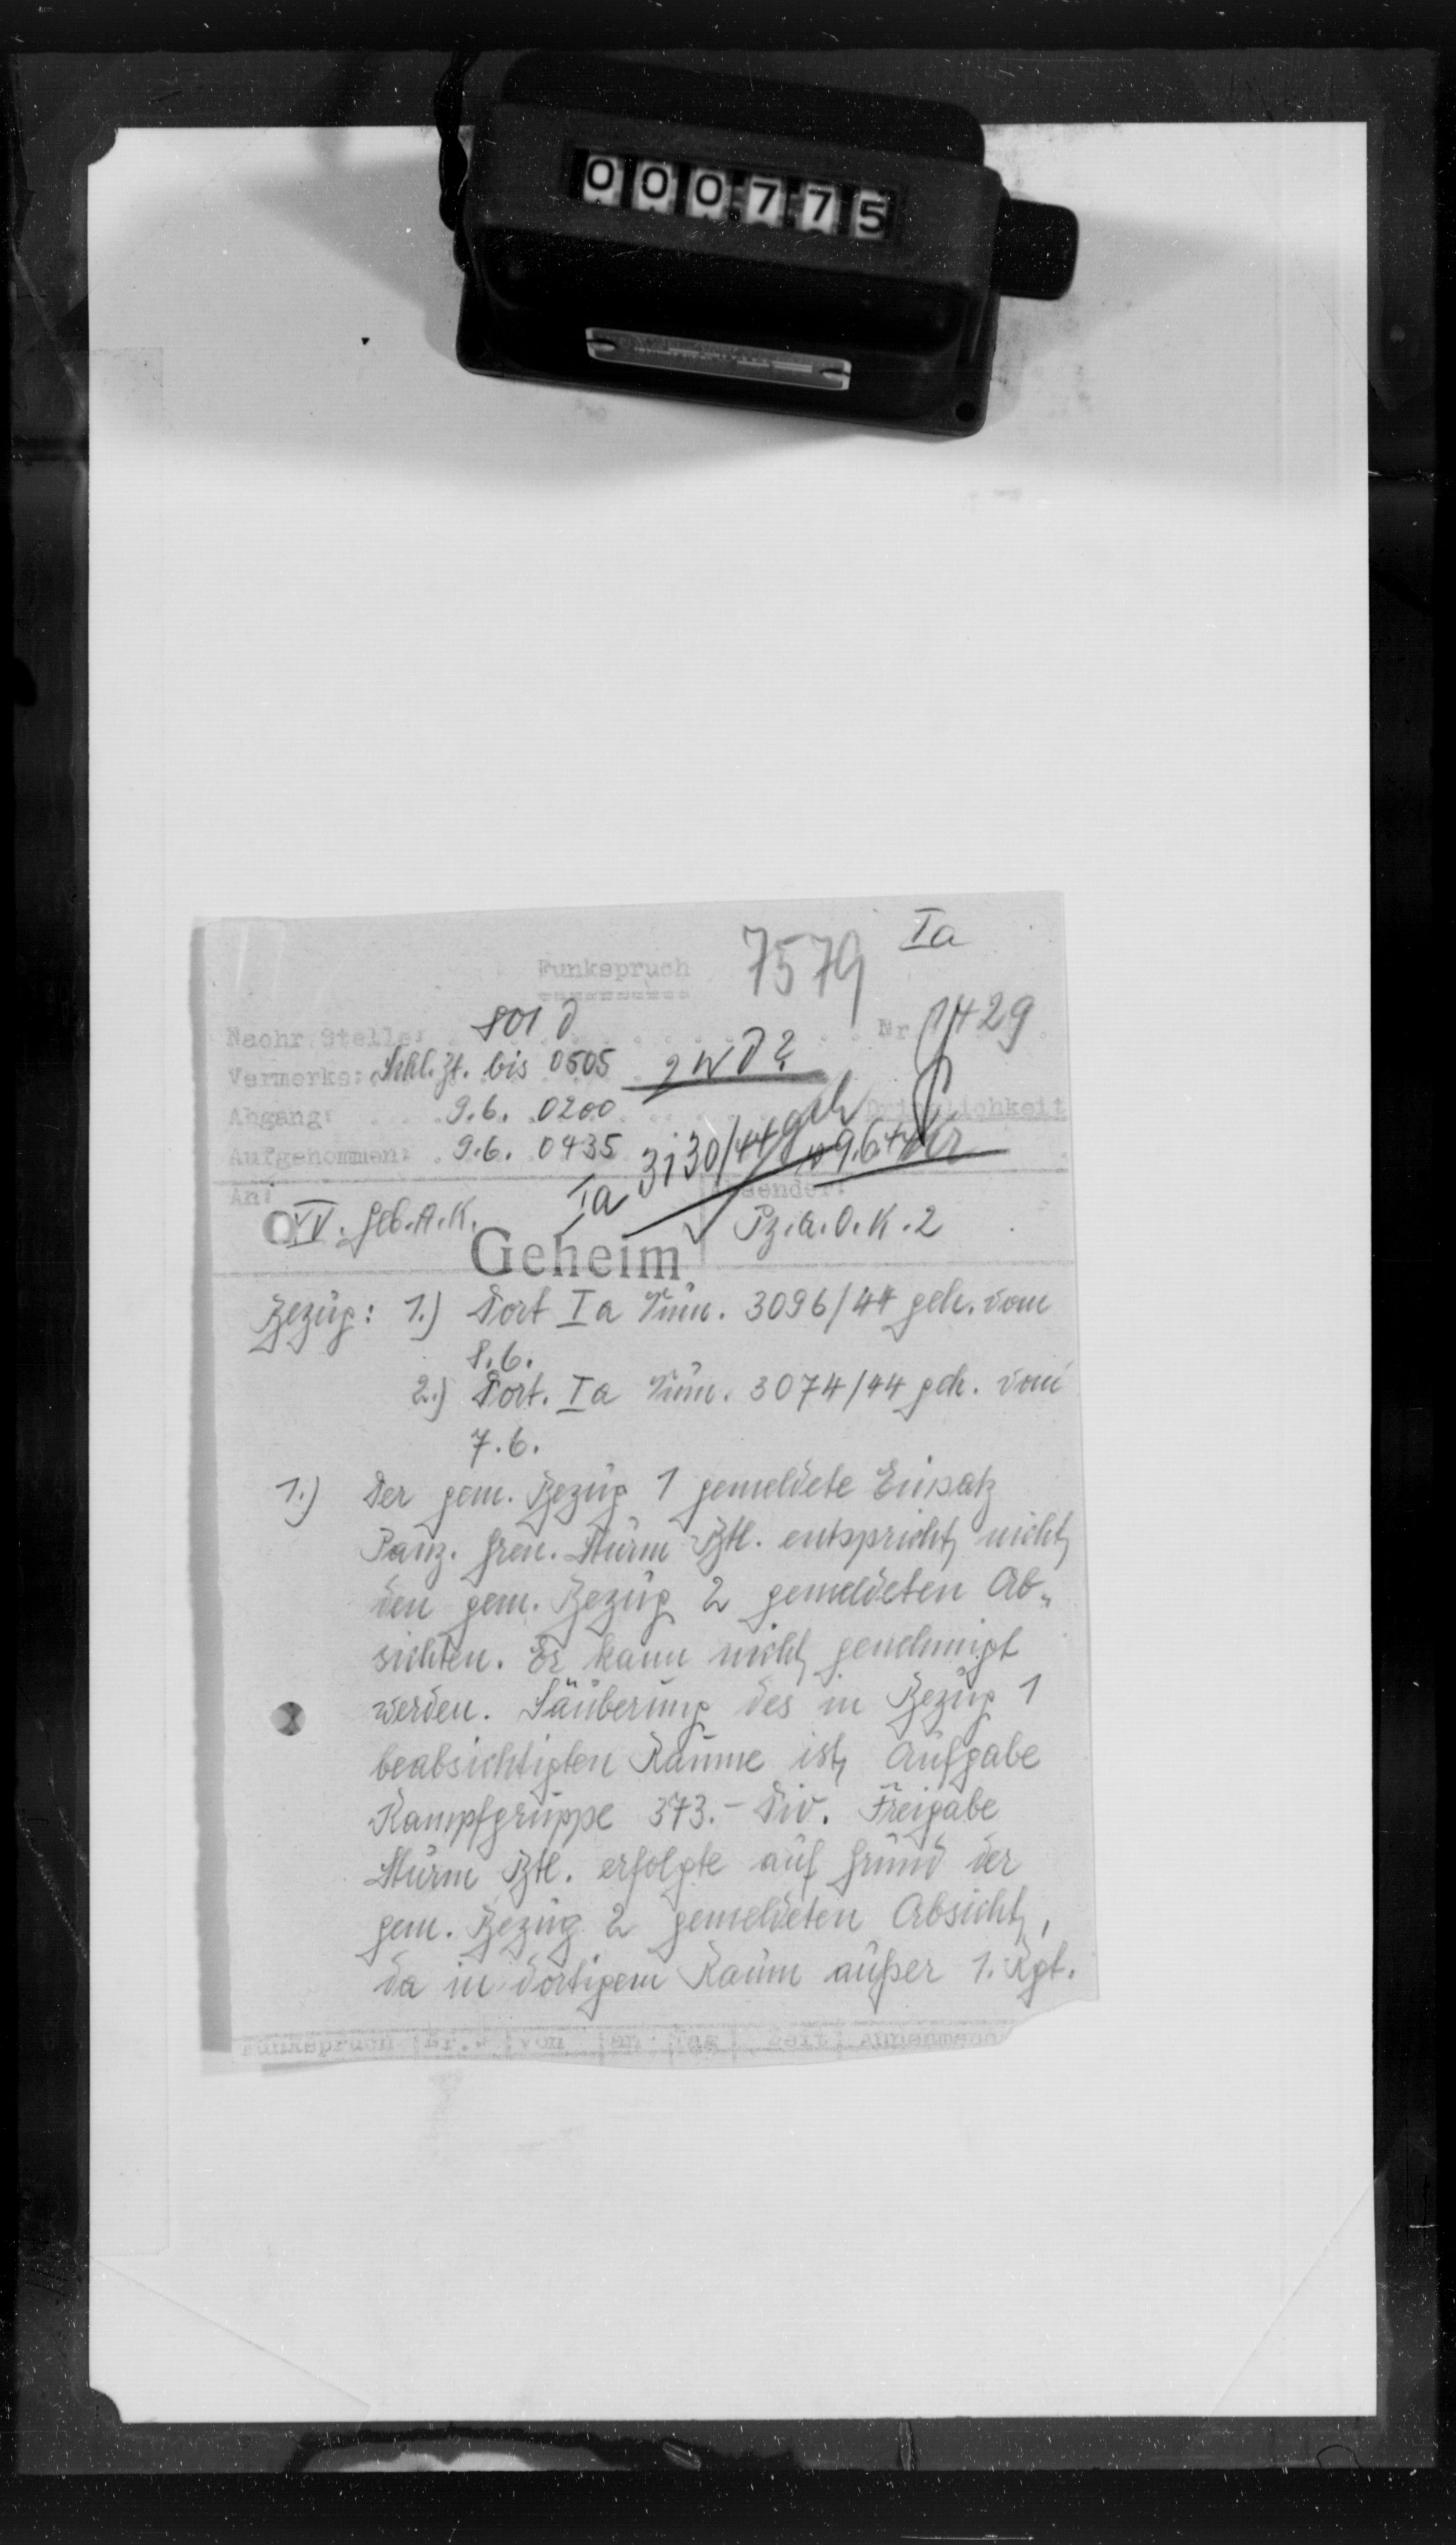 000775
7579 Ia
Funkspruch
Nachr.Stelle: 801 d Nr. 1429
Vermerke: Schl.Zt. bis 0505
Abgang: 9.6. 0200 Dringlichkeit
Aufgenommen: 9.6. 0435
Ia 3130/44 geh 9.6.44
An: Absender:
XV. Geb.A.K. Pz.A.O.K.2
Geheim
Bezug: 1.) Dort Ia Num. 3096/44 geh. vom
8.6.
2.) Dort. Ia Num. 3074/44 geh. vom
7.6.
1.) Der gem. Bezug 1 gemeldete Einsatz
Panz. Gren. Sturm Btl. entspricht nicht
den gem. Bezug 2 gemeldeten Ab-
sichten. Er kann nicht genehmigt
werden. Säuberung des in Bezug 1
beabsichtigten Raume ist Aufgabe
Kampfgruppe 373.- Div. Freigabe
Sturm Btl. erfolgte auf Grund der
gem. Bezug 2 gemeldeten Absicht,
da in dortigem Raum außer 1. Rgt.
Funkspruch Nr. von an Tag Zeit Annehmend